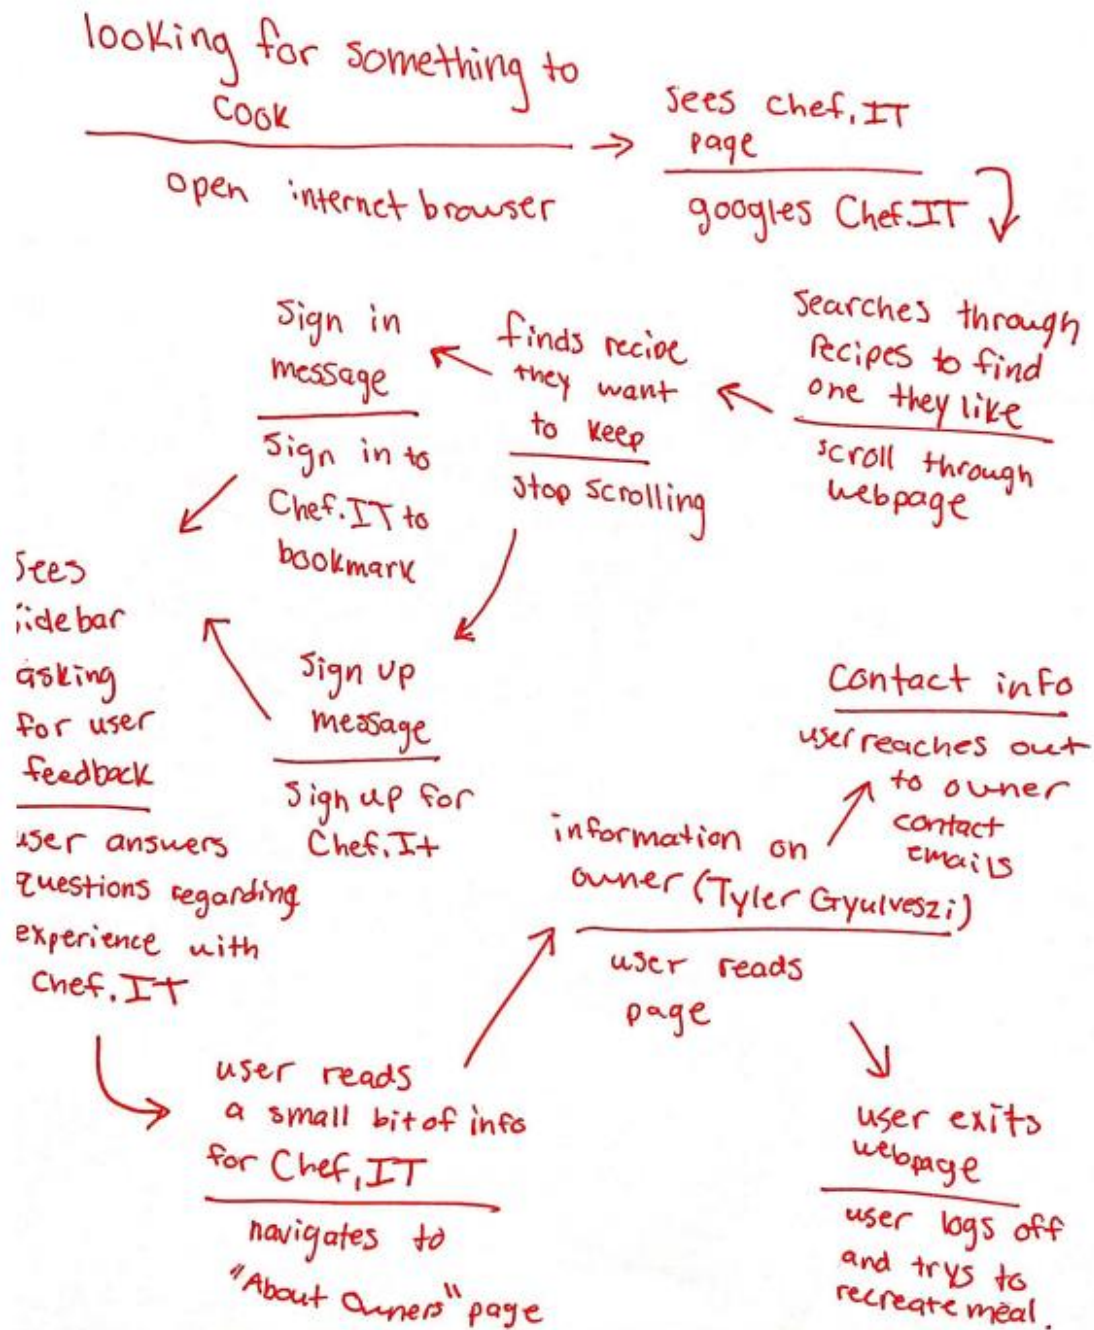 looking for something to
cook
open internet browser
sees chef.IT
page
googles Chef.IT
Searches through
recipes to find
one they like
scroll through
webpage
finds recipe
they want
to keep
stop scrolling
Sign in
message
Sign in to
Chef.IT to
bookmark
Sign up
message
Sign up for
Chef.It
Sees
sidebar
asking
for user
feedback
user answers
questions regarding
experience with
Chef.IT
user reads
a small bit of info
for Chef.IT
navigates to
"About Owners" page
information on
owner (Tyler Gyulveszi)
user reads
page
Contact info
user reaches out
to owner
contact
emails
user exits
webpage
user logs off
and trys to
recreate meal.